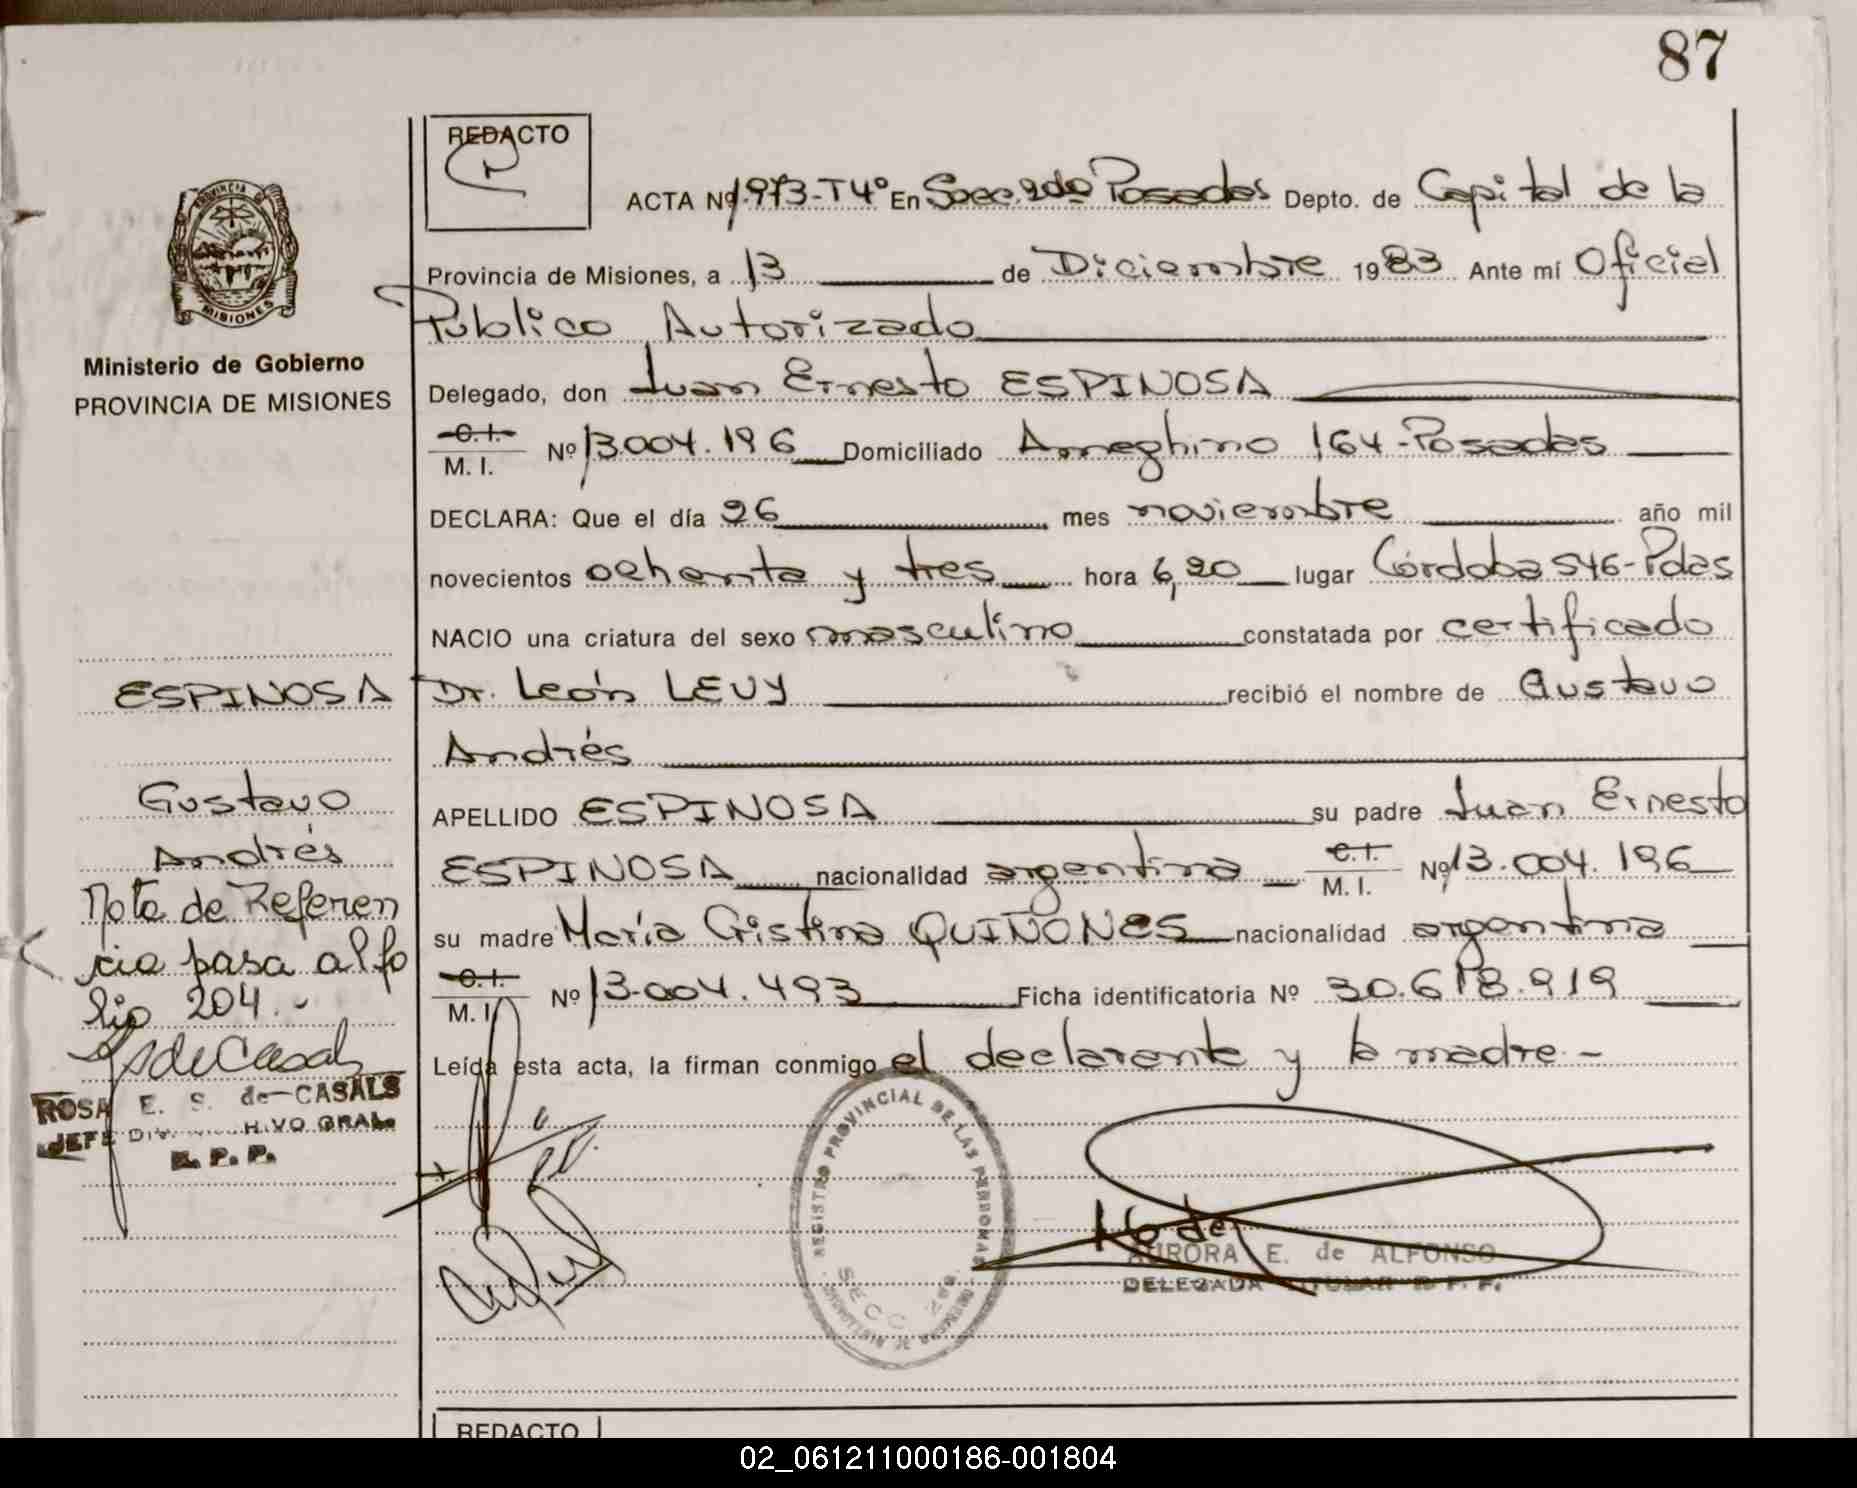 87
REDACTO
ACTA Nº 1.973-T4º En Secc. 2da Posadas Depto. de Capital de la
PROVINCIA DE MISIONES
Provincia de Misiones, a 13 de Diciembre 1983 Ante mí Oficial
Publico Autorizado
Ministerio de Gobierno
PROVINCIA DE MISIONES
Delegado, don Juan Ernesto ESPINOSA
C. I. M. I. Nº 13.004.196 Domiciliado Ameghino 164-Posadas
DECLARA: Que el día 26 mes noviembre año mil
novecientos ochenta y tres hora 6,20 lugar Córdoba 546-Pdas
NACIO una criatura del sexo masculino constatada por certificado
Dr. León LEVY recibió el nombre de Gustavo
Andrés
APELLIDO ESPINOSA su padre Juan Ernesto
ESPINOSA nacionalidad argentina C. I. M. I. Nº 13.004.196
su madre María Cristina QUIÑONES nacionalidad argentina
C. I. M. I. Nº 13.004.493 Ficha identificatoria Nº 30.618.919
Leída esta acta, la firman conmigo el declarante y la madre.-
ESPINOSA
Gustavo
Andrés
Nota de Referen
cia pasa al fo
lio 204.-
ROSA E. S. de CASALS
JEFE DIV. ARCHIVO GRAL.
R. P. P.
REGISTRO PROVINCIAL DE LAS PERSONAS
SECC. 2da
AURORA E. de ALFONSO
DELEGADA TITULAR R. P. P.
REDACTO
02_061211000186-001804